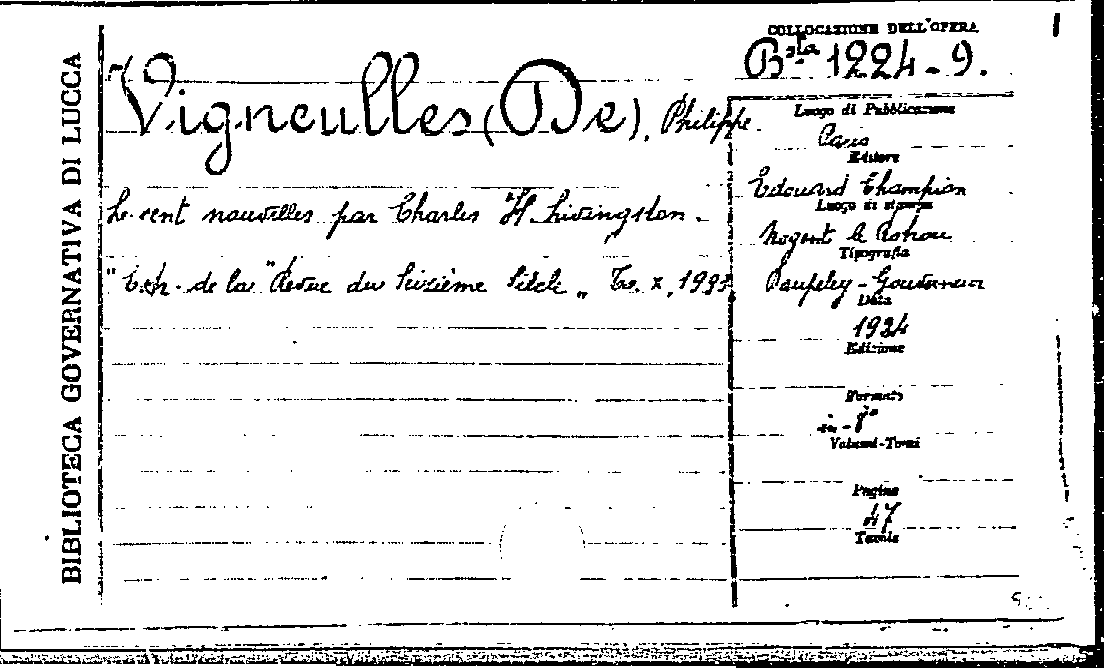 BIBLIOTECA GOVERNATIVA DI LUCCA
COLLOCAZIONE DELL'OPERA
Bsta 1224-9.
Vigneulles (De), Philippe
Le cent nouvelles par Charles H. Livingston.
"Estr. de la "Revue du Seizième Siècle„ To. X, 1923
Luogo di Pubblicazione
Paris
Editore
Edouard Champion
Luogo di stampa
Nogent le Rotrou
Tipografia
Daupeley-Gouverneur
Data
1924
Edizione
Formato
in-8°
Volumi-Tomi
Pagine
47
Tavole